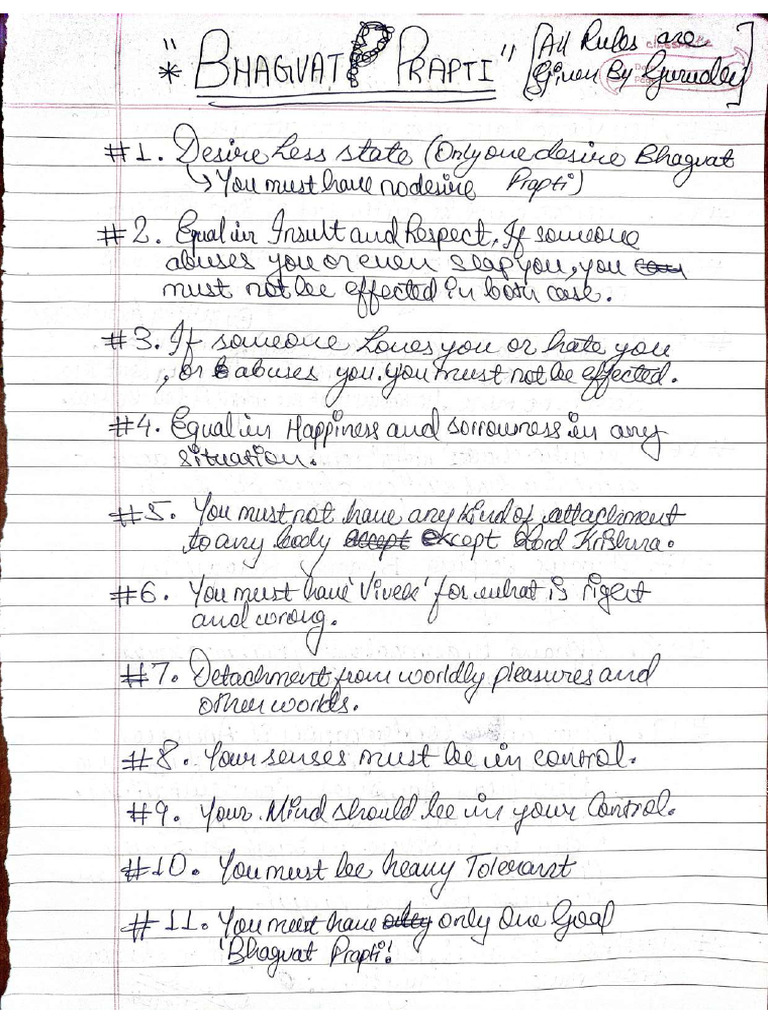 "* BHAGVAT PRAPTI" [All Rules are
Given By Gurudev]
#1. Desire Less state (Only one desire Bhagvat
↳ You must have no desire Prapti)
#2. Equal in Insult and Respect, If someone
abuses you or even slap you, you
must not be effected in both case.
#3. If someone Loves you or hate you
, or abuses you. you must not be effected.
#4. Equal in Happiness and sorrowness in any
situation.
#5. You must not have any kind of attachment
to any body except Lord Krishna.
#6. You must have 'Vivek' for what is right
and wrong.
#7. Detachment from worldly pleasures and
other worlds.
#8. Your senses must be in control.
#9. Your Mind should be in your Control.
#10. You must be heavy Tolerant
#11. You must have only One Goal
'Bhagvat Prapti!